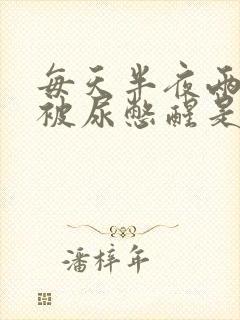 每天半夜两
被尿憋醒是
潘梓年